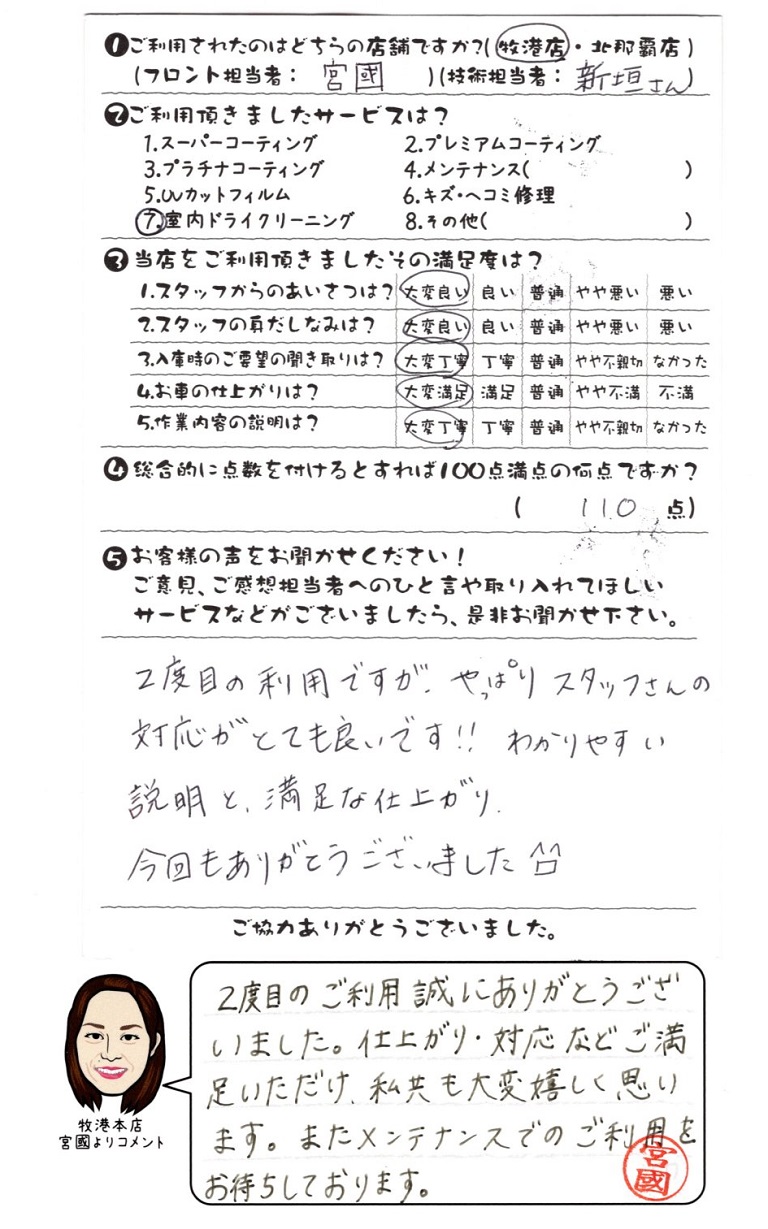 ❶ご利用されたのはどちらの店舗ですか？(牧港店・北那覇店)
(フロント担当者： 宮國 )(技術担当者： 新垣さん)
❷ご利用頂きましたサービスは？
1.スーパーコーティング 2.プレミアムコーティング
3.プラチナコーティング 4.メンテナンス( )
5.UVカットフィルム 6.キズ・ヘコミ修理
7.室内ドライクリーニング 8.その他( )
❸当店をご利用頂きましたその満足度は？
1.スタッフからのあいさつは？ 大変良い 良い 普通 やや悪い 悪い
2.スタッフの身だしなみは？ 大変良い 良い 普通 やや悪い 悪い
3.入庫時のご要望の聞き取りは？ 大変丁寧 丁寧 普通 やや不親切 なかった
4.お車の仕上がりは？ 大変満足 満足 普通 やや不満 不満
5.作業内容の説明は？ 大変丁寧 丁寧 普通 やや不親切 なかった
❹総合的に点数を付けるとすれば100点満点の何点ですか？
( 110 点)
❺お客様の声をお聞かせください！
ご意見、ご感想担当者へのひと言や取り入れてほしい
サービスなどがございましたら、是非お聞かせ下さい。
2度目の利用ですが、やっぱりスタッフさんの
対応がとても良いです!! わかりやすい
説明と、満足な仕上がり、
今回もありがとうございました
ご協力ありがとうございました。
2度目のご利用誠にありがとうござ
いました。仕上がり・対応などご満
足いただけ、私共も大変嬉しく思い
ます。またメンテナンスでのご利用を
お待ちしております。
宮國
牧港本店
宮國よりコメント